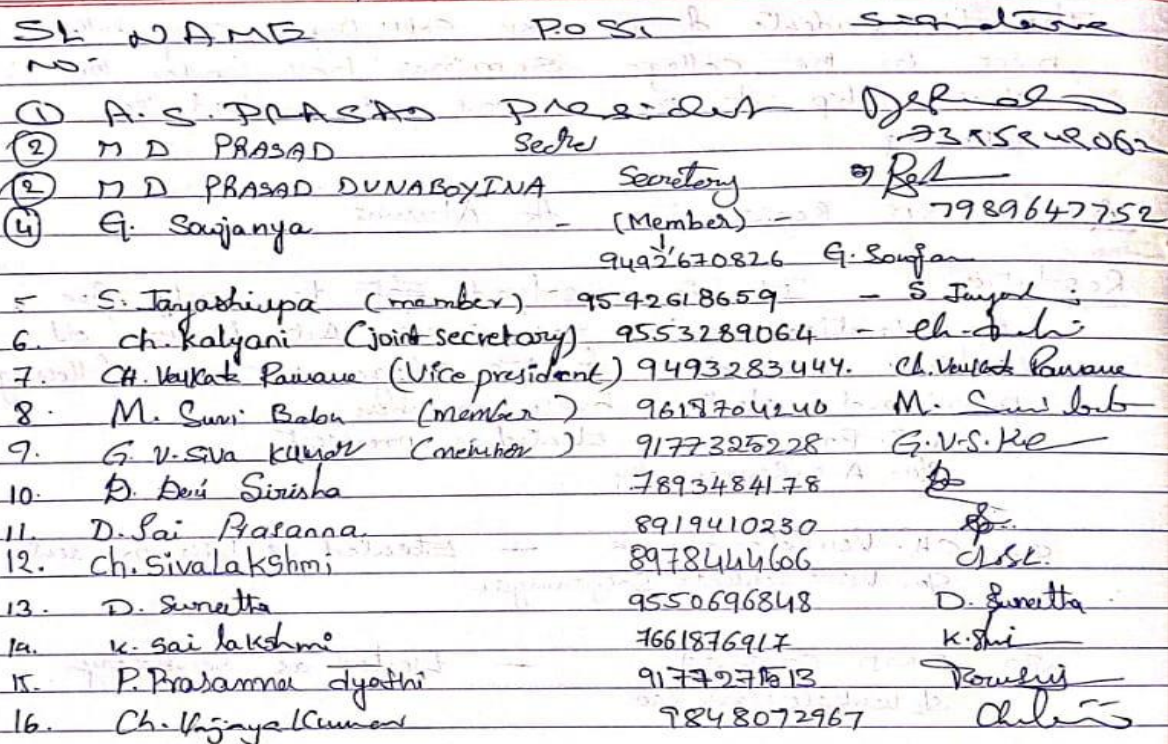 SL NAME POST Signature
NO:
① A. S. PRASAD President
② M D PRASAD Secre
② M D PRASAD DUNABOYINA Secretary
7989647752
④ G. Soujanya - (Member) -
9492670826 G. Soujan
S. Jayashilpa (member) 9542618659 - S Jayash
6. ch. Kalyani (joint secretary) 9553289064 -
7. CH. Venkata Pavane (Vice president) 9493283444. Ch. Venkata Pavane
8. M. Suri Babu (member) 9618704240 M. Suri bab
9. G. V. Siva Kumar (member) 9177325228 G.V.S.
10. D. Devi Sirisha 7893484178
11. D. Sai Prasanna. 8919410230
12. Ch. Sivalakshmi 8978444606 Ch.SL.
13. D. Suneetha 9550696848 D. Suneetha
14. K. Sai lakshmi 7661876917 K.
15. P. Prasanna Jyothi
16. Ch. Vijaya Kumar 9848072967